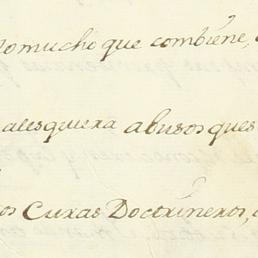 lo mucho que combiene,
alesquiera abusos ques
os Curas Doctrineros,